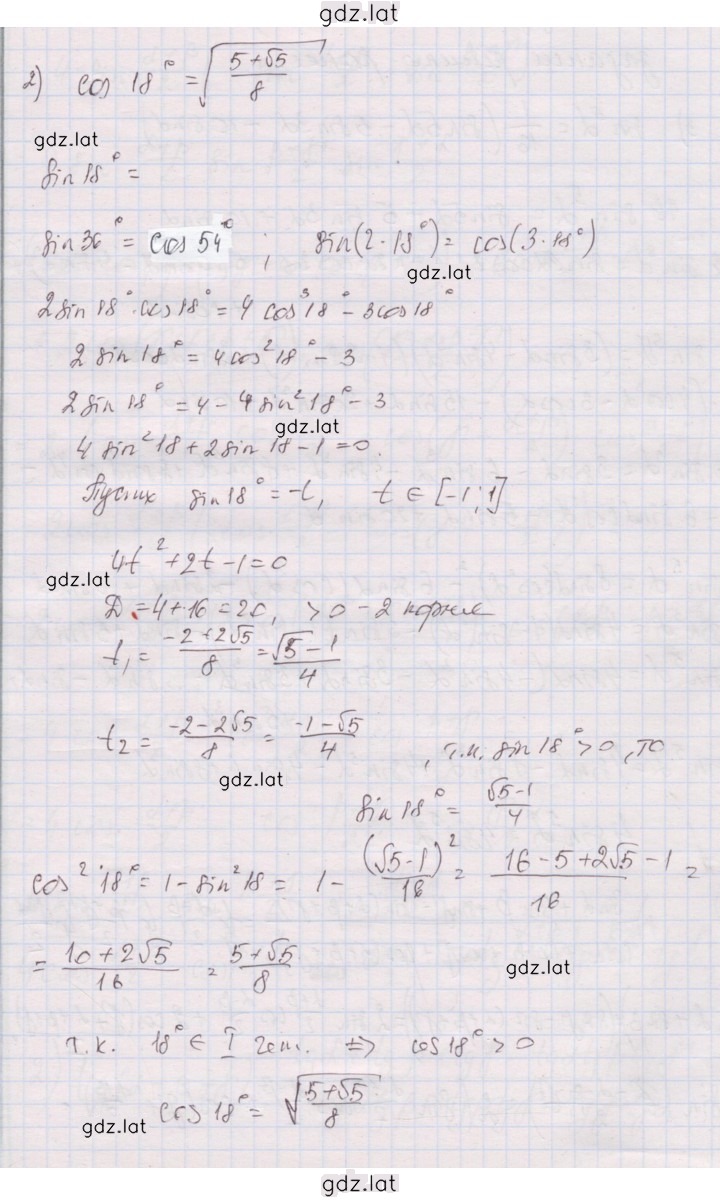 gdz.lat
2) cos 18° = √((5+√5)/8)
gdz.lat
sin 18° =
sin 36° = cos 54° ; sin(2·18°) = cos(3·18°)
gdz.lat
2 sin 18°·cos 18° = 4 cos³ 18° - 3 cos 18°
2 sin 18° = 4 cos² 18° - 3
2 sin 18° = 4 - 4 sin² 18° - 3
gdz.lat
4 sin² 18 + 2 sin 18 - 1 = 0.
Пусть sin 18° = t, t ∈ [-1; 1]
4t² + 2t - 1 = 0
gdz.lat
Д = 4 + 16 = 20, > 0 - 2 корня
t₁ = (-2+2√5)/8 = (√5-1)/4
t₂ = (-2-2√5)/8 = (-1-√5)/4
, т.к. sin 18° > 0, то
gdz.lat
sin 18° = (√5-1)/4
cos² 18° = 1 - sin² 18 = 1 - (√5-1)²/16 = (16-5+2√5-1)/16 =
= (10+2√5)/16 = (5+√5)/8
gdz.lat
т.к. 18° ∈ I чет. ⇒ cos 18° > 0
cos 18° = √((5+√5)/8)
gdz.lat
gdz.lat